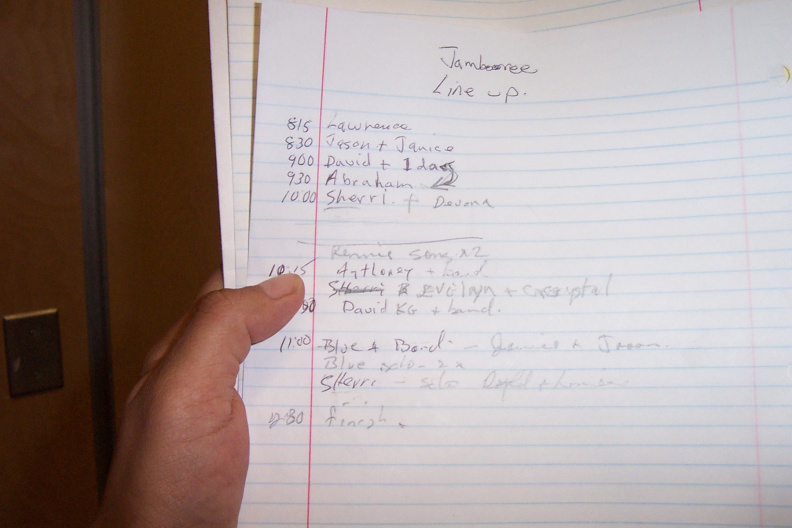 Jamboree
Line up.
815 Lawrence
830 Jason + Janice
900 David + Ida
930 Abraham
10:00 Sherri. + Devona
Rennie song x2
10:15 Anthoney + band
Sherri & Evilyn + 
David KG + band.
11:00 Blue & Band - Jason.
Blue solo - 2x
Sherri - solo
12:30 finish.